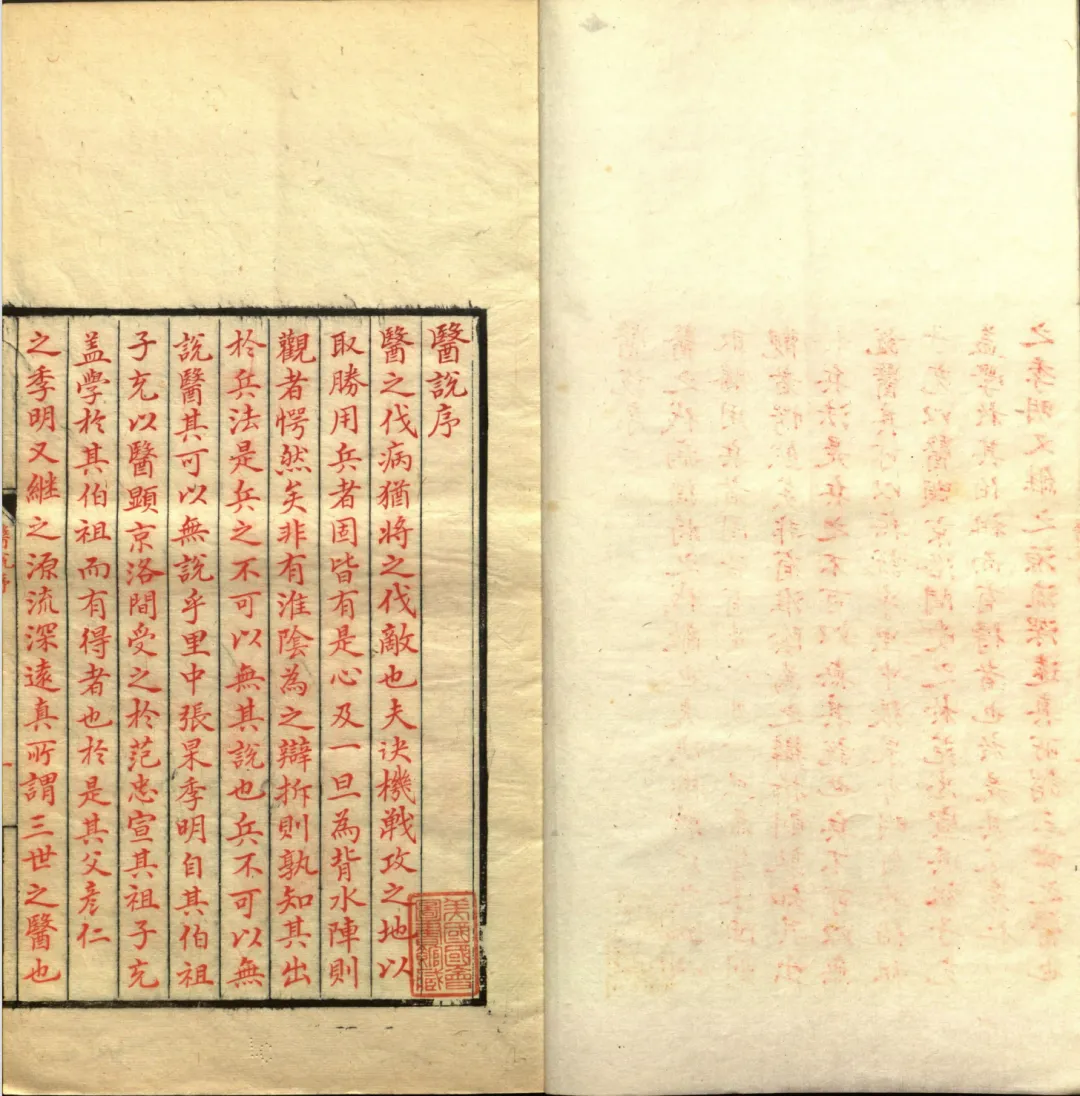 醫說序
醫之伐病猶將之伐敵也夫诀機戰攻之地以
取勝用兵者固皆有是心及一旦為背水陣則
觀者愕然矣非有淮陰為之辯拆則孰知其出
於兵法是兵之不可以無其說也兵不可以無
說醫其可以無說乎里中張杲季明自其伯祖
子充以醫顯京洛間受之於范忠宣其祖子充
盖學於其伯祖而有得者也於是其父彥仁
之季明又継之源流深遠真所謂三世之醫也
醫說序
一
美國國會
圖書館藏